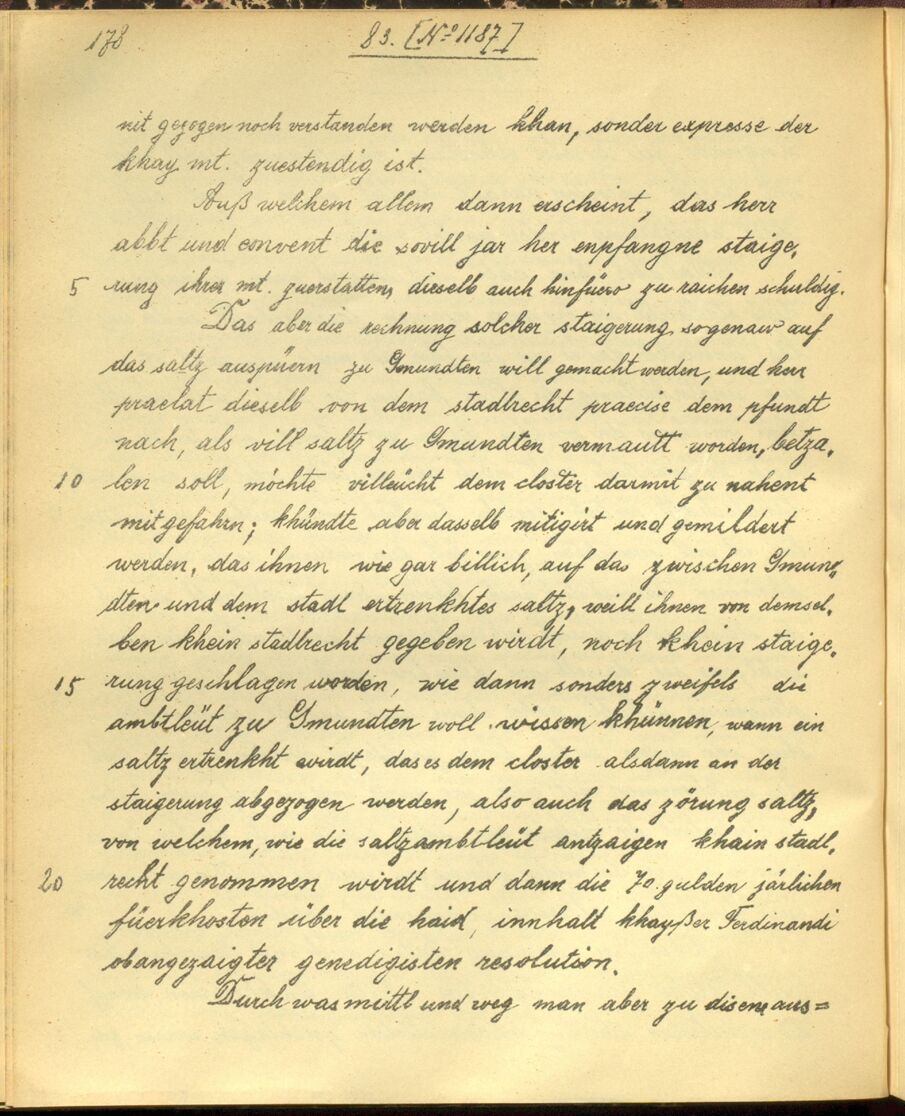 178
83. [Nº 1187]
nit gezogen noch verstanden werden khan, sonder expresse der
khay. mt. zuestendig ist.
Auß welchem allem dann erscheint, das herr
abbt und convent die sovill jar her enpfangne staige,
5 rung ihrer mt. zuerstatten, dieselb auch hinfüero zu raichen schuldig.
Das aber die rechnung solcher staigerung so genaw auf
das saltz auspüern zu Gmundten will gemacht werden, und herr
praelat dieselb von dem stadlrecht praecise dem pfundt
nach, als vill saltz zu Gmundten vermautt worden, betza,
10 len soll, möchte villeücht dem closter darmit zu nahent
mitgefahrn; khündte aber dasselb mitigirt und gemildert
werden, das ihnen wie gar billich, auf das zwischen Gmun,
dten und dem stadl ertrenkhtes saltz, weill ihnen von demsel,
ben khein stadlrecht gegeben wirdt, noch khein staige,
15 rung geschlagen worden, wie dann sonders zweifels die
ambtleüt zu Gmundten woll wissen khünnen, wann ein
saltz ertrenkht wirdt, das es dem closter alsdann an der
staigerung abgezogen werden, also auch das zörung saltz,
von welchem, wie die saltzambtleüt antzaigen khain stadl,
20 recht genommen wirdt und dann die 70 gulden järlichen
füerkhosten über die haid, innhalt khayßer Ferdinandi
obangezaigter genedigisten resolution.
Durch was mittl und weg man aber zu disem aus=